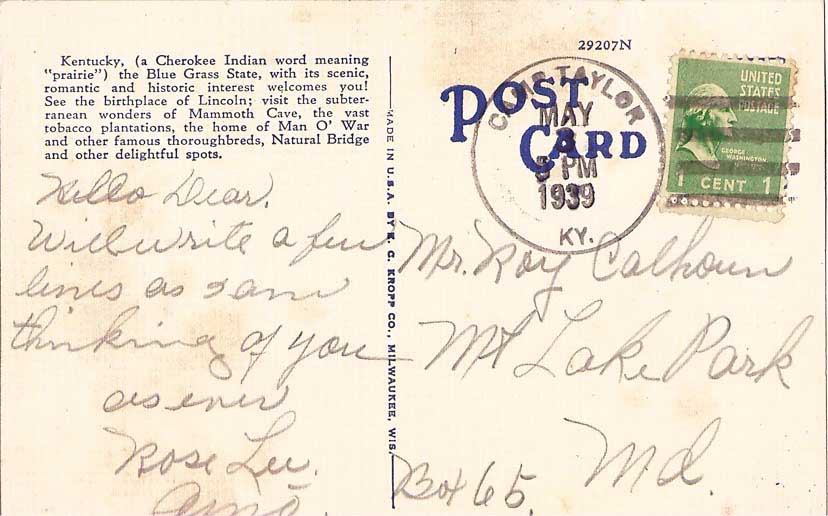 Kentucky, (a Cherokee Indian word meaning
"prairie") the Blue Grass State, with its scenic,
romantic and historic interest welcomes you!
See the birthplace of Lincoln; visit the subter-
ranean wonders of Mammoth Cave, the vast
tobacco plantations, the home of Man O' War
and other famous thoroughbreds, Natural Bridge
and other delightful spots.
Hello Dear.
Will write a few
lines as I am
thinking of you
as ever
Rose Lee.
MADE IN U.S.A. BY E. C. KROPP CO., MILWAUKEE, WIS.
29207N
POST
CARD
CAMP TAYLOR
MAY
3
PM
1939
KY.
UNITED
STATES
POSTAGE
GEORGE
WASHINGTON
1 CENT 1
Mr. Roy Calhoun
Mt Lake Park
Md.
Box 65.